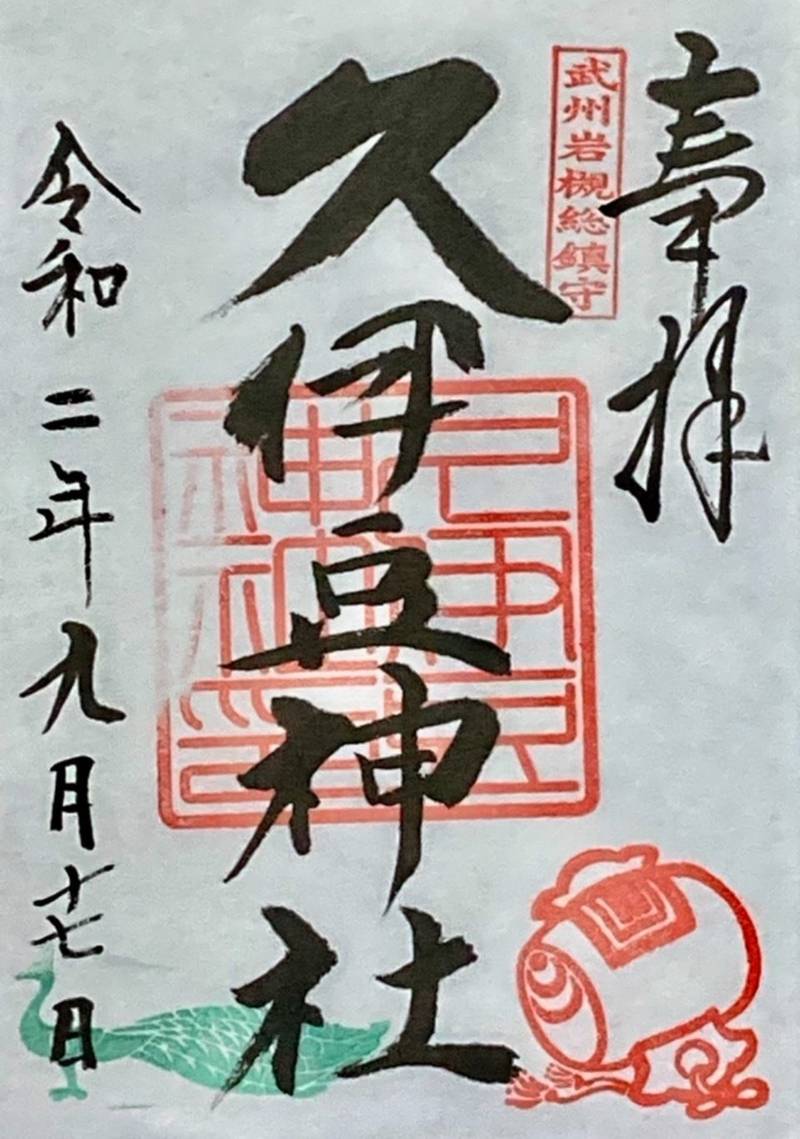 奉拝
武州岩槻総鎮守
久伊豆神社
久伊豆神社印
令和二年九月十七日